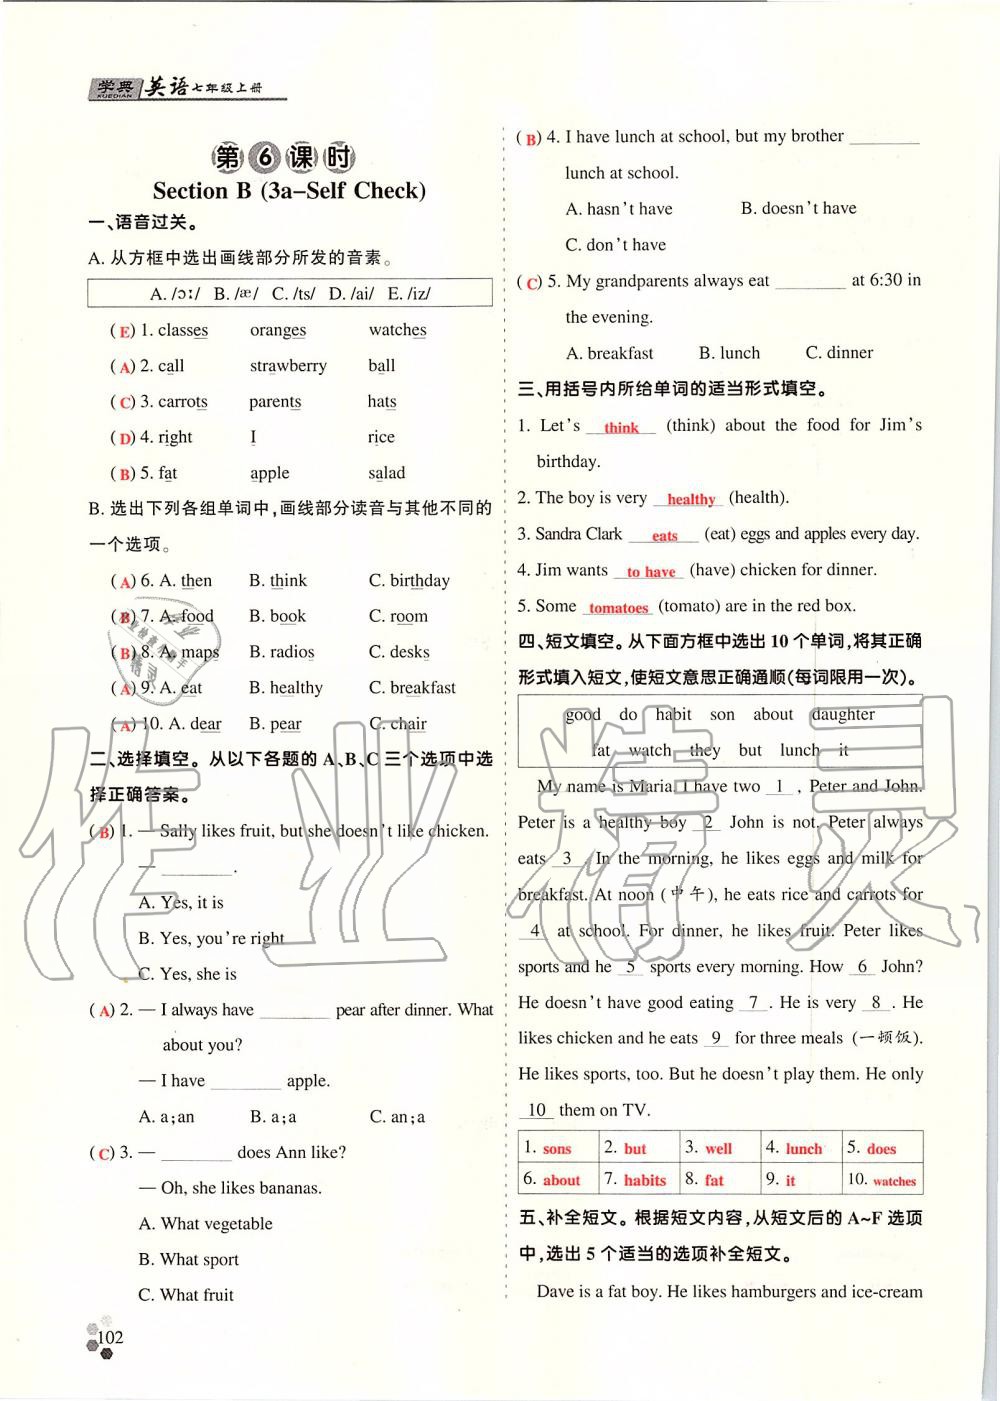 学典 XUEDIAN 英语七年级上册
第6课时
Section B (3a–Self Check)
一、语音过关。
A. 从方框中选出画线部分所发的音素。
A. /ɔː/ B. /æ/ C. /ts/ D. /ai/ E. /iz/
( E ) 1. classes oranges watches
( A ) 2. call strawberry ball
( C ) 3. carrots parents hats
( D ) 4. right I rice
( B ) 5. fat apple salad
B. 选出下列各组单词中,画线部分读音与其他不同的
一个选项。
( A ) 6. A. then B. think C. birthday
( B ) 7. A. food B. book C. room
( B ) 8. A. maps B. radios C. desks
( A ) 9. A. eat B. healthy C. breakfast
( A ) 10. A. dear B. pear C. chair
二、选择填空。从以下各题的 A、B、C 三个选项中选
择正确答案。
( B ) 1. — Sally likes fruit, but she doesn't like chicken.
— ________.
A. Yes, it is
B. Yes, you're right
C. Yes, she is
( A ) 2. — I always have ________ pear after dinner. What
about you?
— I have ________ apple.
A. a;an B. a;a C. an;a
( C ) 3. — ________ does Ann like?
— Oh, she likes bananas.
A. What vegetable
B. What sport
C. What fruit
102
( B ) 4. I have lunch at school, but my brother ________
lunch at school.
A. hasn't have B. doesn't have
C. don't have
( C ) 5. My grandparents always eat ________ at 6:30 in
the evening.
A. breakfast B. lunch C. dinner
三、用括号内所给单词的适当形式填空。
1. Let's think (think) about the food for Jim's
birthday.
2. The boy is very healthy (health).
3. Sandra Clark eats (eat) eggs and apples every day.
4. Jim wants to have (have) chicken for dinner.
5. Some tomatoes (tomato) are in the red box.
四、短文填空。从下面方框中选出 10 个单词,将其正确
形式填入短文,使短文意思正确通顺(每词限用一次)。
good do habit son about daughter
fat watch they but lunch it
My name is Maria. I have two 1 , Peter and John.
Peter is a healthy boy 2 John is not. Peter always
eats 3 . In the morning, he likes eggs and milk for
breakfast. At noon (中午), he eats rice and carrots for
4 at school. For dinner, he likes fruit. Peter likes
sports and he 5 sports every morning. How 6 John?
He doesn't have good eating 7 . He is very 8 . He
likes chicken and he eats 9 for three meals (一顿饭).
He likes sports, too. But he doesn't play them. He only
10 them on TV.
1. sons 2. but 3. well 4. lunch 5. does
6. about 7. habits 8. fat 9. it 10. watches
五、补全短文。根据短文内容,从短文后的 A~F 选项
中,选出 5 个适当的选项补全短文。
Dave is a fat boy. He likes hamburgers and ice-cream
作业精灵